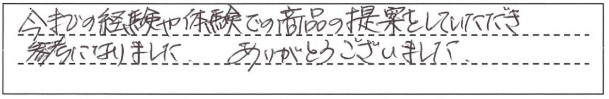 今までの経験や体験での商品の提案をしていただき
参考になりました。 ありがとうございました。